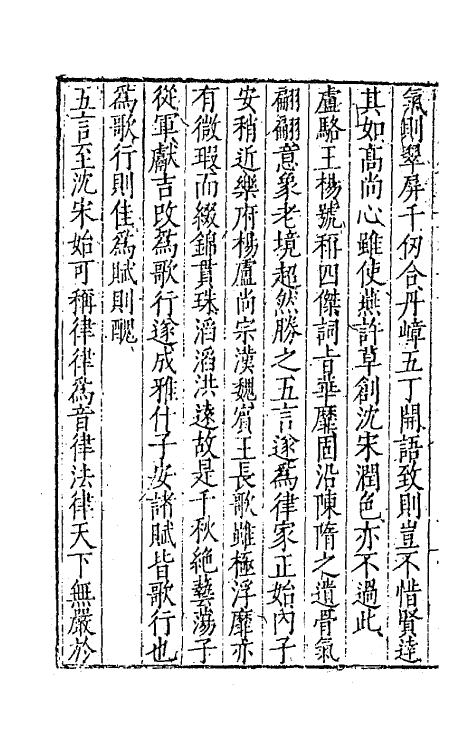 氣則翠屏千仞合丹嶂五丁開語致則豈不惜賢達
其如高尚心雖使燕許草創沈宋潤色亦不過此
盧駱王楊號稱四傑詞旨華靡固沿陳隋之遺骨氣
翩翩意象老境超然勝之五言遂為律家正始內子
安稍近樂府楊盧尚宗漢魏賓王長歌雖極浮靡亦
有微瑕而綴錦貫珠滔滔洪遠故是千秋絶藝蕩子
從軍獻吉改為歌行遂成雅什子安諸賦皆歌行也
為歌行則佳為賦則醜
五言至沈宋始可稱律律為音律法律天下無嚴於